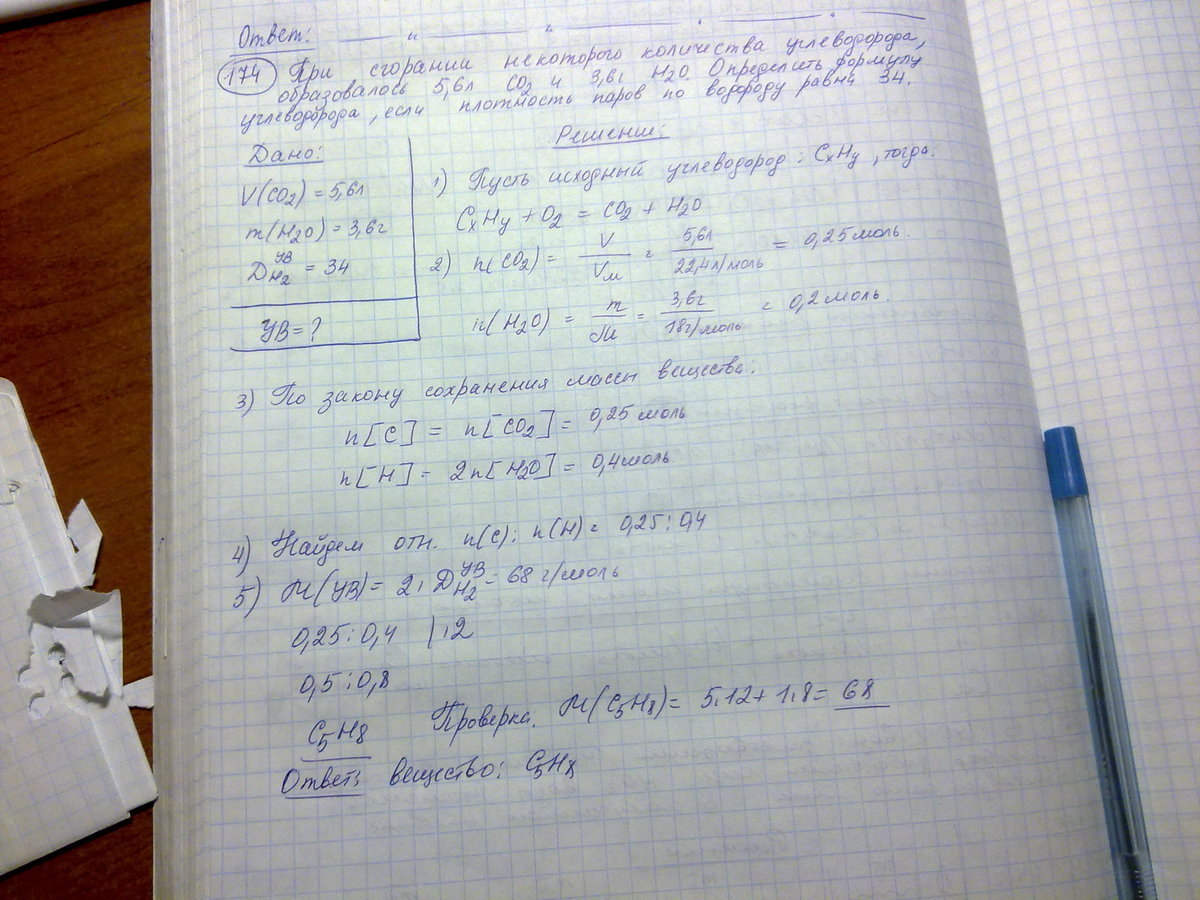 Ответ:
174 При сгорании некоторого количества углеводорода,
образовалось 5,6л CO2 и 3,6г H2O. Определить формулу
углеводорода, если плотность паров по водороду равна 34.
Дано:
V(CO2) = 5,6л
m(H2O) = 3,6г
D УВ H2 = 34
УВ = ?
Решение:
1) Пусть исходный углеводород: CxHy, тогда.
CxHy + O2 = CO2 + H2O
2) n(CO2) = V/Vм = 5,6л/22,4л/моль = 0,25 моль.
n(H2O) = m/M = 3,6г/18г/моль = 0,2 моль.
3) По закону сохранения массы вещества:
n[C] = n[CO2] = 0,25 моль
n[H] = 2n[H2O] = 0,4 моль
4) Найдем отн. n(C) : n(H) = 0,25 : 0,4
5) M(УВ) = 2 · D УВ H2 = 68 г/моль
0,25 : 0,4 | ·2
0,5 : 0,8
C5H8 Проверка. M(C5H8) = 5·12 + 1·8 = 68
Ответ: вещество: C5H8